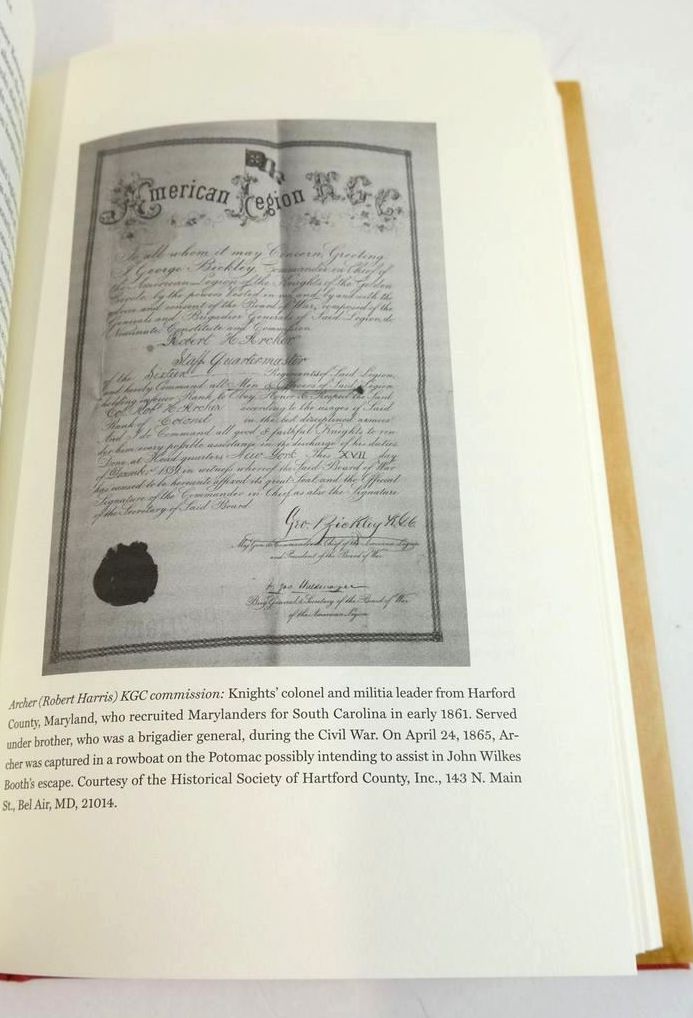 American Legion K.G.C.
To all whom it may Concern, Greeting
I George Bickley, Commander in Chief of
the American Legion of the Knights of the Golden
Circle, by the powers vested in me, and by and with the
advice and consent of the Board of War, composed of the
Generals and Brigadier Generals of Said Legion, do
Nominate, Constitute and Commission
Robert H. Archer
Staff Quartermaster
of the Sixteen Regiments of Said Legion,
and hereby Command all Men & Officers of Said Legion
holding inferior Rank, to Obey, Honor & Respect the Said,
Col. Robt H. Archer according to the usages of Said
Rank of Colonel in the best disciplined armies
And I do Command all good & faithful Knights to ren-
der him every possible assistance in the discharge of his duties
Done at Head quarters New York this XVII day
of 1859 in witness whereof the Said Board of War
has caused to be hereunto affixed its great Seal and the Official
Signature of the Commander in Chief, as also the Signature
of the Secretary of Said Board.
Geo. Bickley K.G.C.
Chief of the American Legion
and President of the Board of War
Brig General & Secretary of the Board of War
of the American Legion
Archer (Robert Harris) KGC commission: Knights' colonel and militia leader from Harford
County, Maryland, who recruited Marylanders for South Carolina in early 1861. Served
under brother, who was a brigadier general, during the Civil War. On April 24, 1865, Ar-
cher was captured in a rowboat on the Potomac possibly intending to assist in John Wilkes
Booth's escape. Courtesy of the Historical Society of Hartford County, Inc., 143 N. Main
St., Bel Air, MD, 21014.